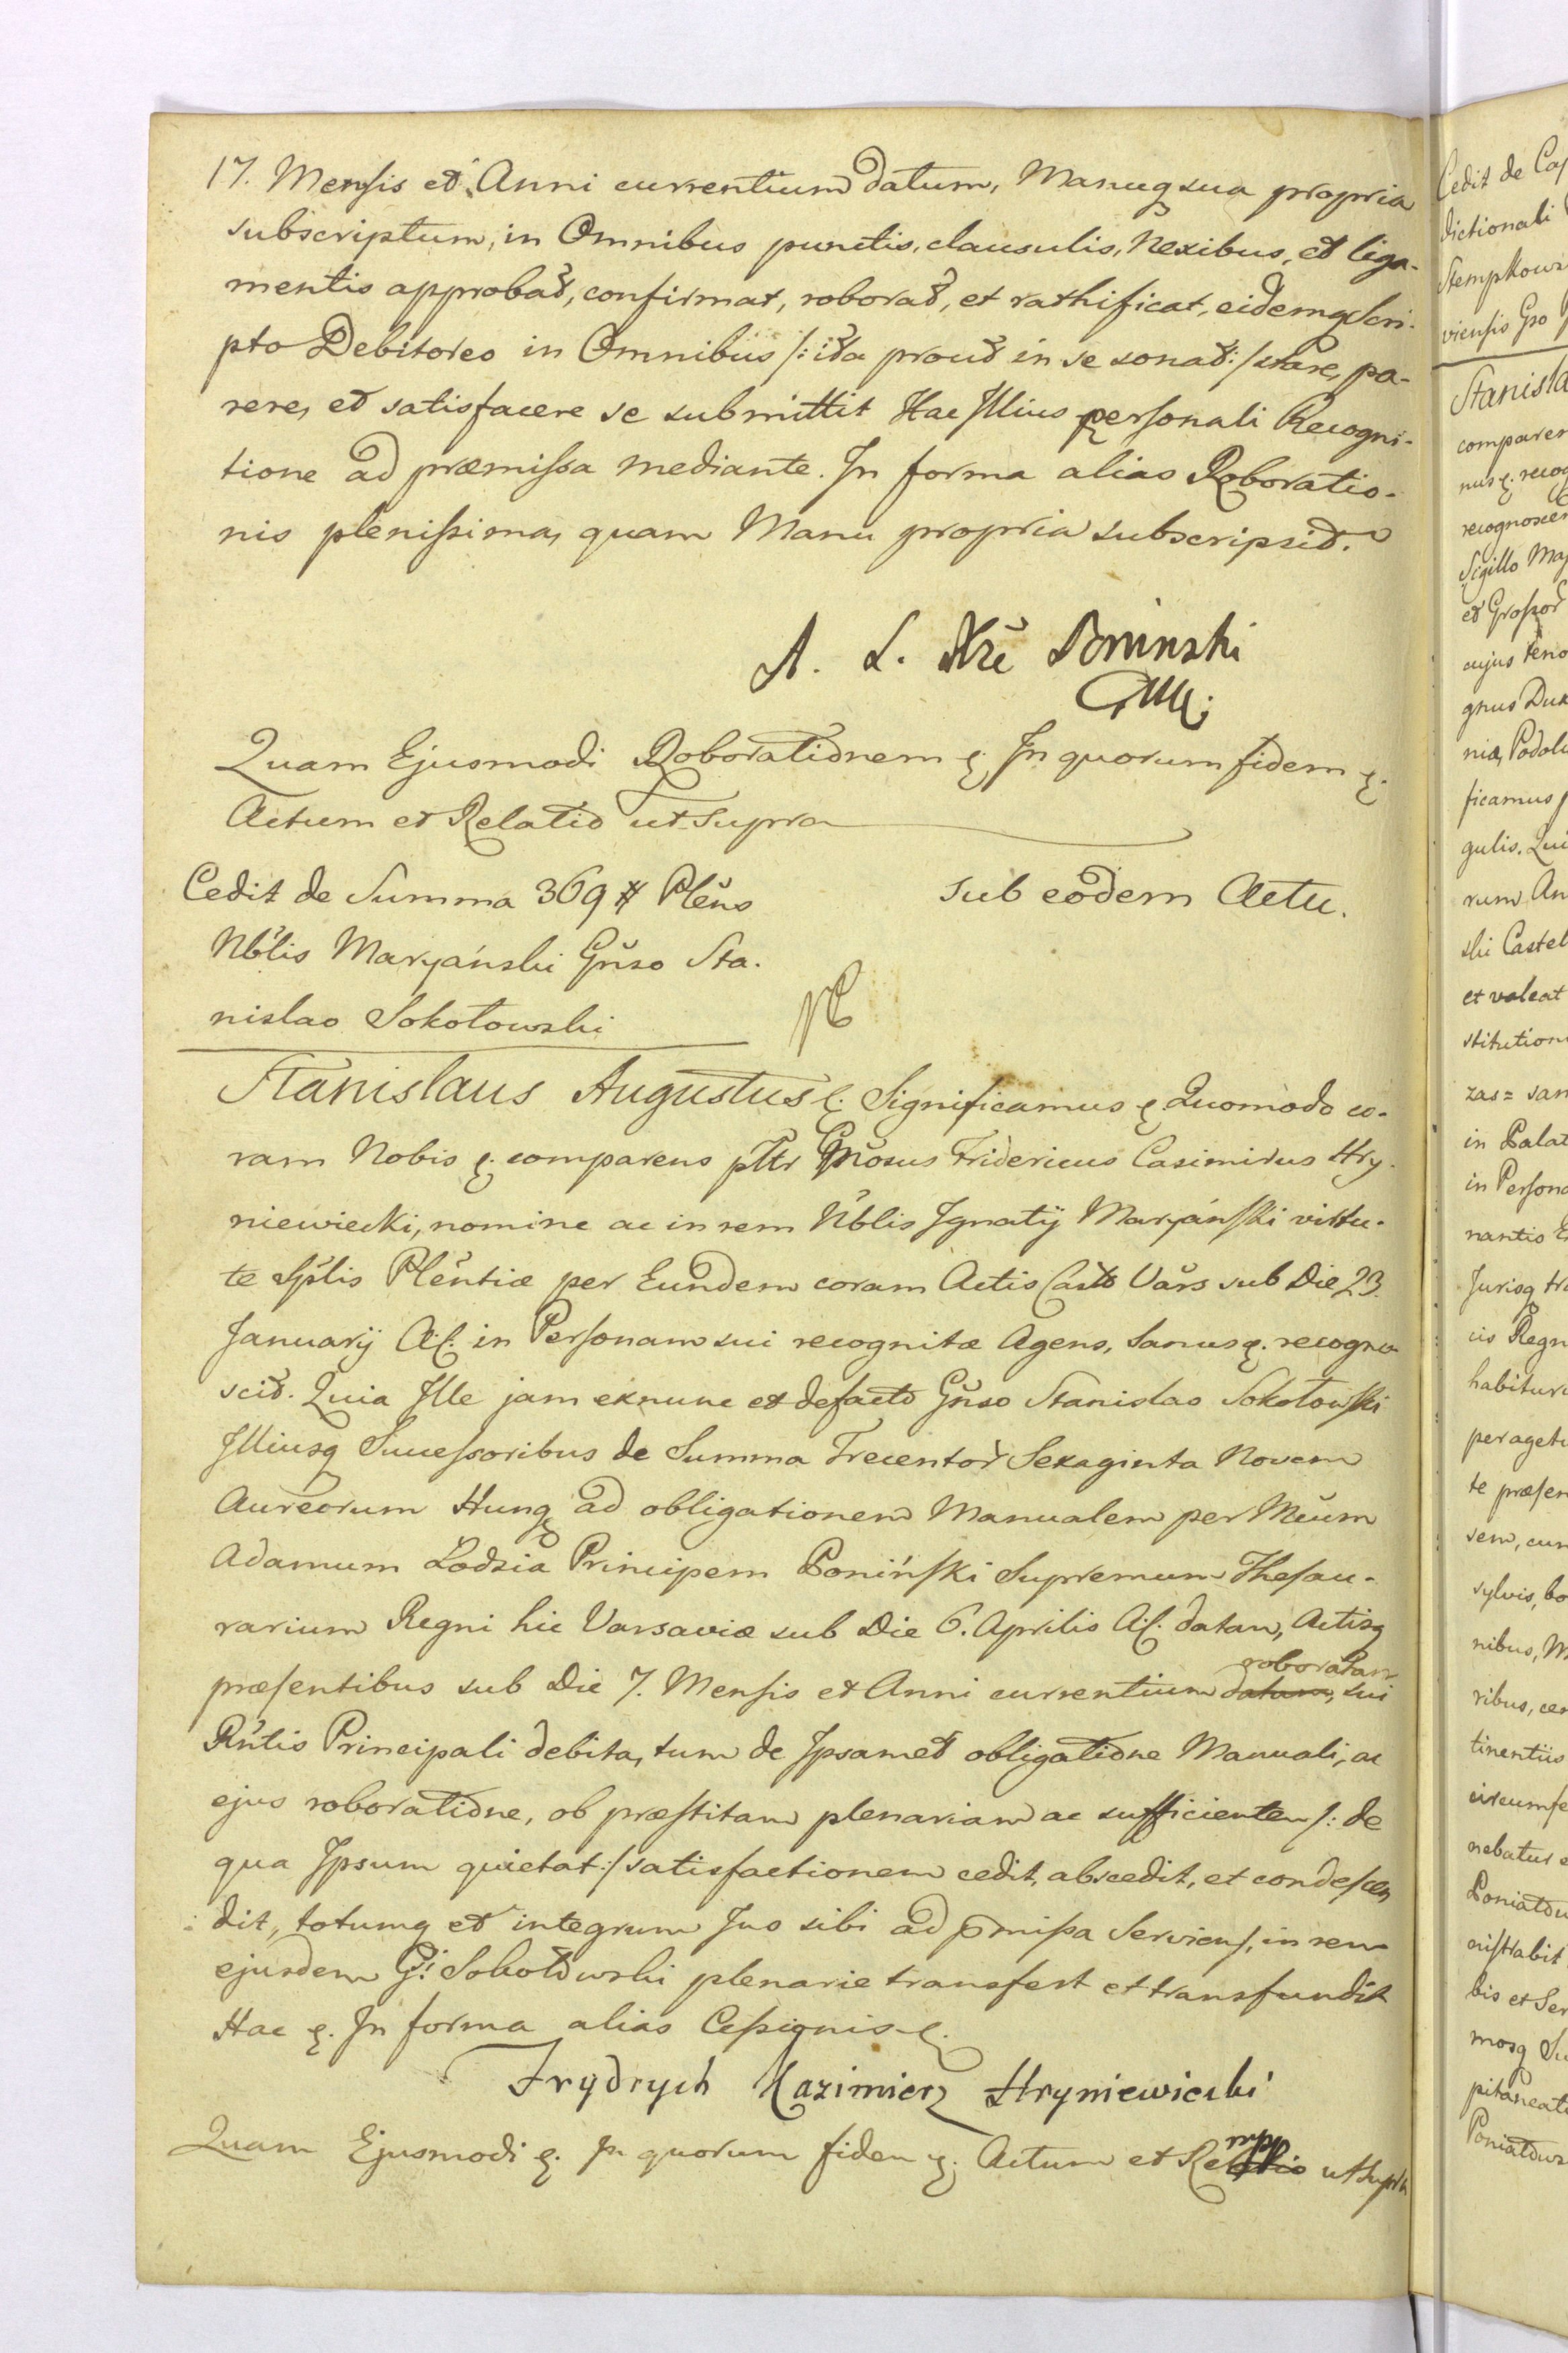 17. Mensis et Anni currentium datum, Manuq sua propria
subscriptum, in Omnibus punctis, clausulis, Nexibus, et liga-
mentis approbat, confirmat, roborat, et rathificat, eidemq Scri-
pto Debitoreo in Omnibus /: ita prout in se sonat :/ stare, pa-
rere, et satisfacere se submittit Hac Illius personali Recogni-
tione ad præmissa mediante. In forma alias Roboratio-
nis plenissima, quam Manu propria subscripsit.
A. L. Xże Poninski
Quam Ejusmodi Roborationem ę. In quorum fidem ę.
Actum et Relatio ut supra
Cedit de Summa 369 # Plĕns
sub eodem Actu.
Nblis Maryánski Gnso Sta-
nislao Sokołowski
Stanislaus Augustus ę. Significamus ę. Quomodo co-
ram Nobis ę. comparens pltr Gnosus Fridericus Casimirus Hry-
niewiecki, nomine ac in rem Nblis Ignatij Maryánski virtu-
te Splis Plentiæ per Eundem coram Actis Castr Vars sub Die 23.
Januarij A.C. in Personam sui recognitæ Agens, Sanus ę. recogno-
scit. Quia Ille jam exnunc et defacto Gnso Stanislao Sokołowski
Illiusq Successoribus de Summa Trecentor Sexaginta Novem
Aureorum Hung ad obligationem Manualem per Mcum
Adamum Łodzia Principem Poniński Supremum Thesau-
rarium Regni hic Varsaviæ sub Die 6. Aprilis A.C. datam, Actisq
præsentibus sub Die 7. Mensis et Anni currentium datam, roboratam sui
Rntis Principali debita, tum de Ipsamet obligatione Manuali, ac
ejus roboratione, ob præstitam plenariam ac sufficientem /: de
qua Ipsum quietat :/ satisfactionem cedit, abscedit, et condescen
dit, totumq et integrum Jus sibi ad pmissa Serviens, in rem
ejusdem G: Sokołowski plenarie transfert et transfundit
Hac ę. In forma alias Cessionis ę.
Frydrych Kazimierz Hryniewiecki
Quam Ejusmodi ę. In quorum fidem ę. Actum et Relatio mpr ut supra
Cedit de Cap
dictionali
Stempkows
viensis Gso
Stanisla
comparen
nus ę. recog
recognoscen
Sigillo Maj
et Grossor
cujus teno
gnus Dux
niæ, Podol
ficamus
gulis. Qui
rum An
ski Castel
et valeat
stitution
zas= san
in Palat
in Person
nantis
Jurisq tr
cis Regn
habitur
peraget
te præsen
sem, cum
sylvis, bo
nibus, M
ribus, ce
tinentiis
circumfe
nebatur e
Poniatow
nistrabit
bis et Ser
mosq Su
pitaneat
Poniatows